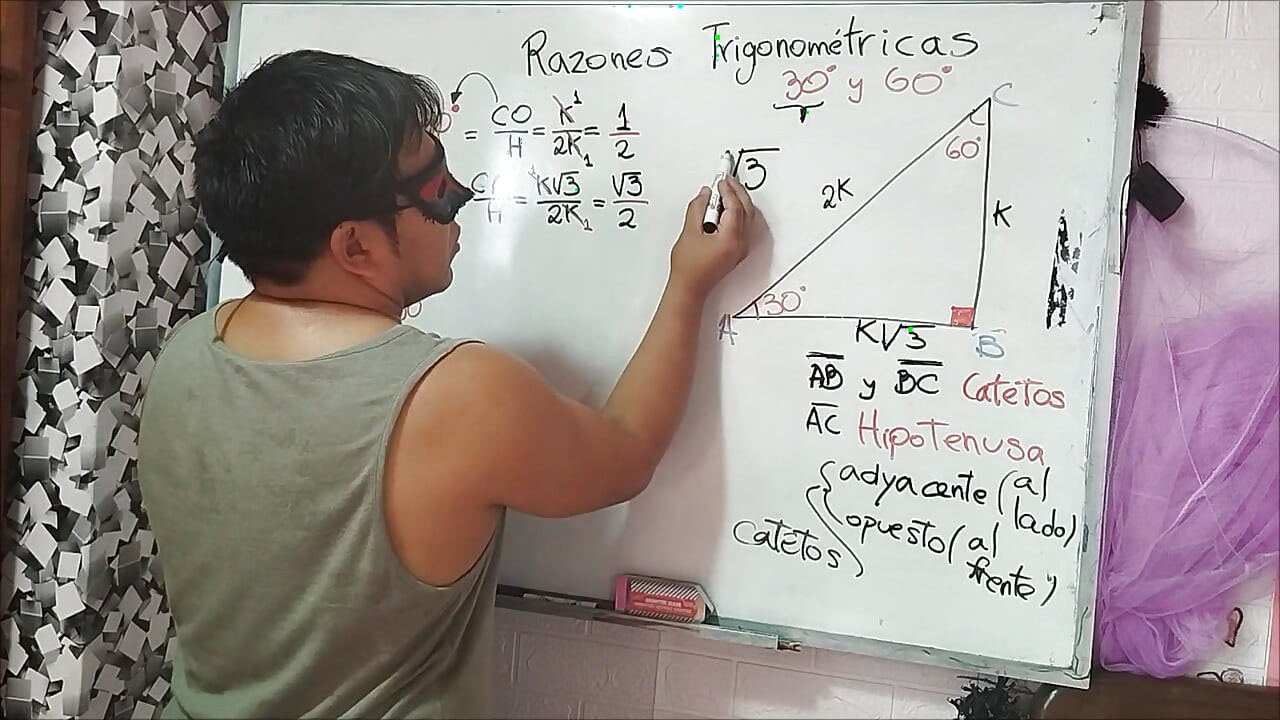 Razones Trigonométricas
30° y 60°
= CO/H = K/2K = 1/2
= K√3/2K = √3/2
√3
C
60°
2K
K
30°
A
K√3
B
AB y BC Catetos
AC Hipotenusa
Catetos
adyacente (al lado)
opuesto (al frente)